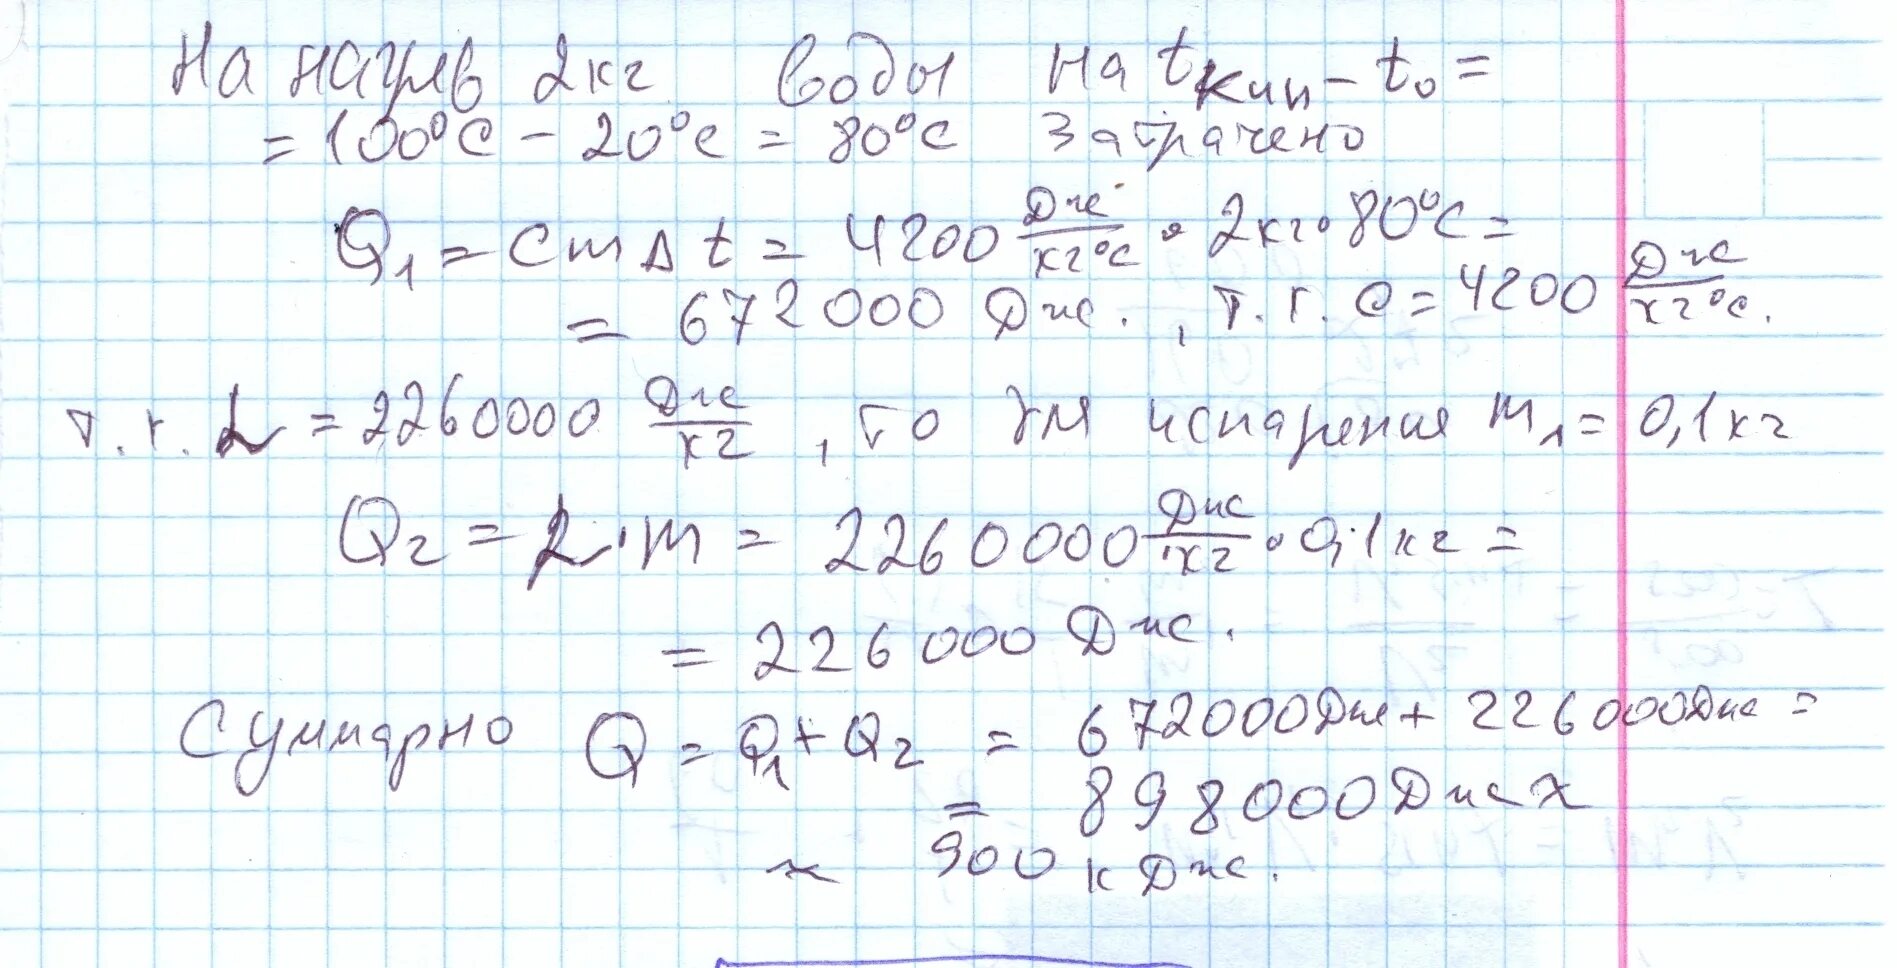 На нагрев 2кг воды на tкип - t₀ =
= 100°C - 20°C = 80°C затрачено
Q₁ = cmΔt = 4200 Дж/кг°C · 2кг · 80°C =
= 672000 Дж. , т.к. c = 4200 Дж/кг°C.
т.к. L = 2260000 Дж/кг , то для испарения m₁ = 0,1кг
Q₂ = L · m = 2260000 Дж/кг · 0,1кг =
= 226000 Дж.
Суммарно Q = Q₁ + Q₂ = 672000Дж + 226000Дж =
= 898000 Дж ≈
≈ 900 кДж.